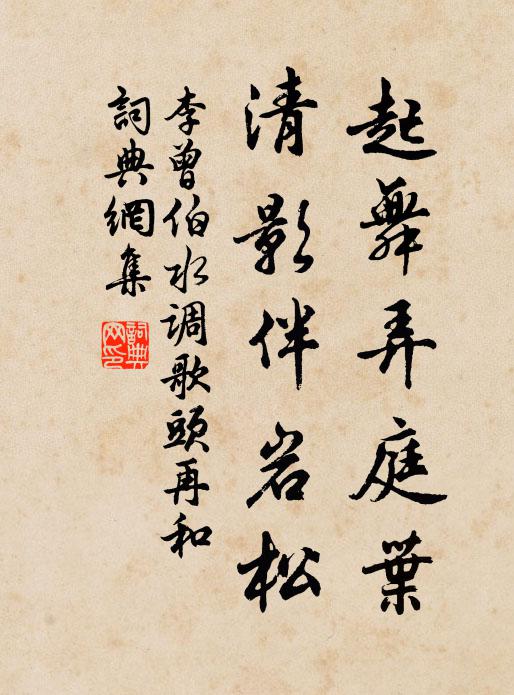 起舞弄庭葉
清影伴岩松
李曾伯水调歌頭再和
詞典網集
詞典網印